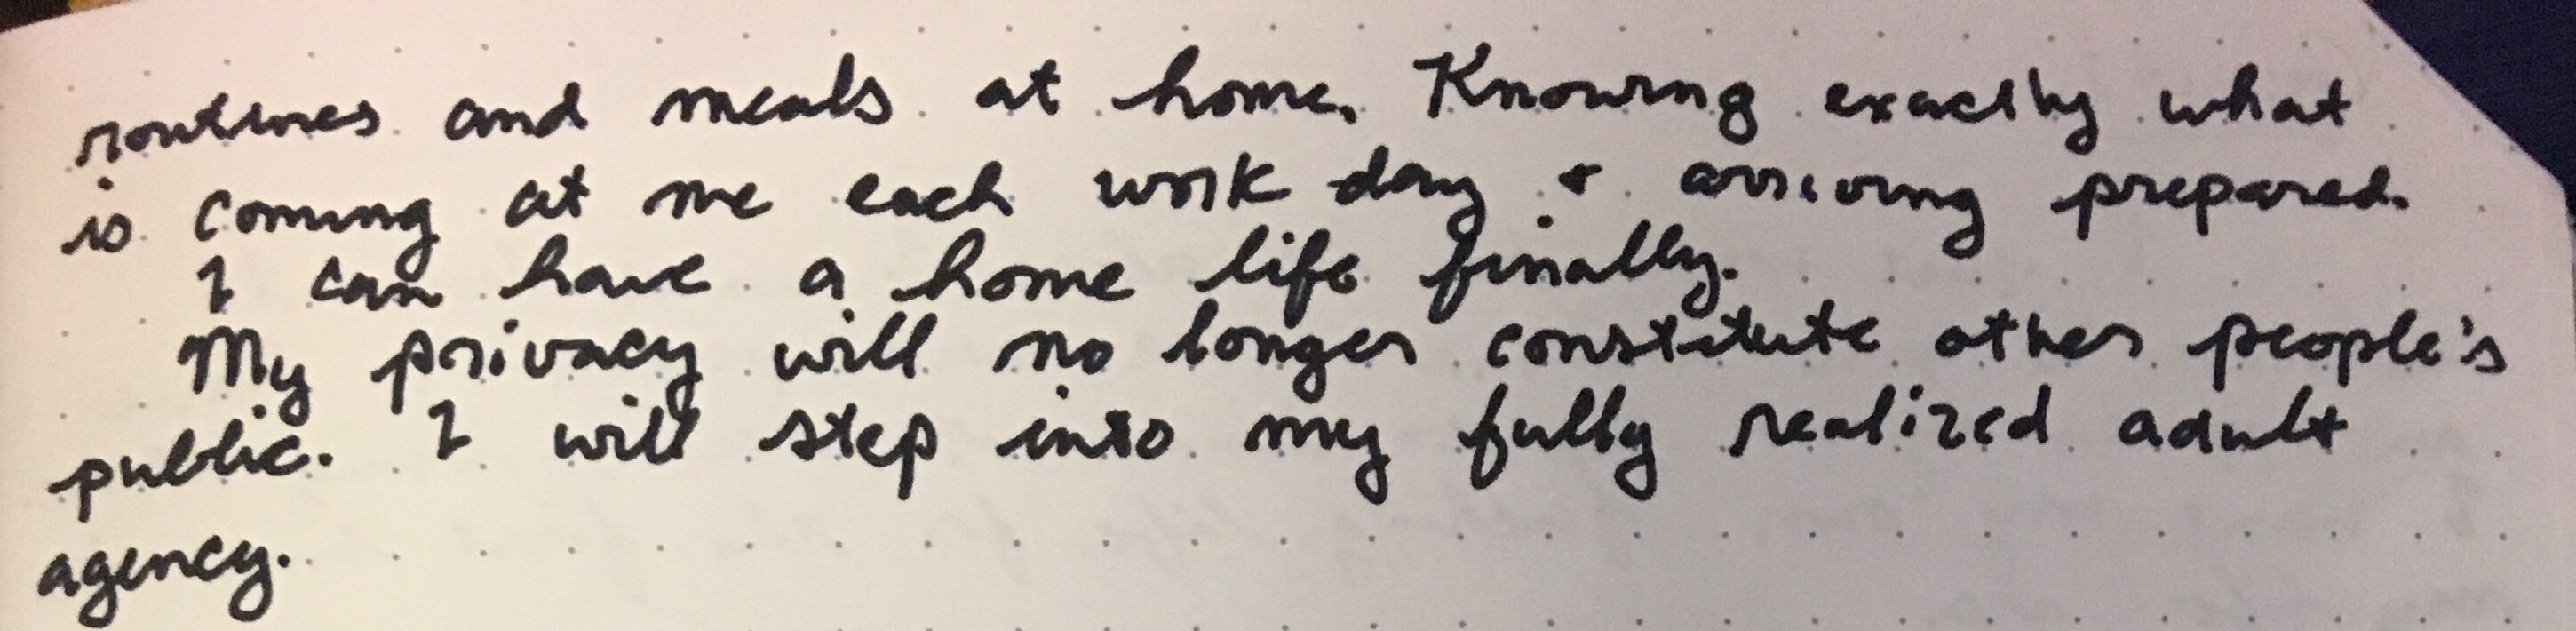 routines and meals at home. Knowing exactly what
is coming at me each work day + arriving prepared.
I can have a home life finally.
My privacy will no longer constitute other people's
public. I will step into my fully realized adult
agency.